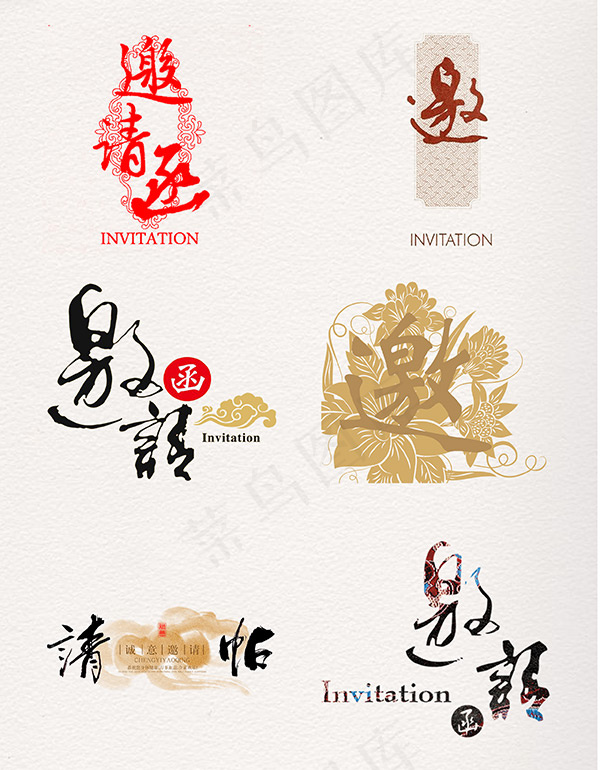 邀
请
函
INVITATION
邀
INVITATION
邀
請
函
Invitation
邀
請
诚意邀请
CHENGYIYAOQING
帖
邀
請
Invitation
函
菜鸟图库
菜鸟图库
菜鸟图库